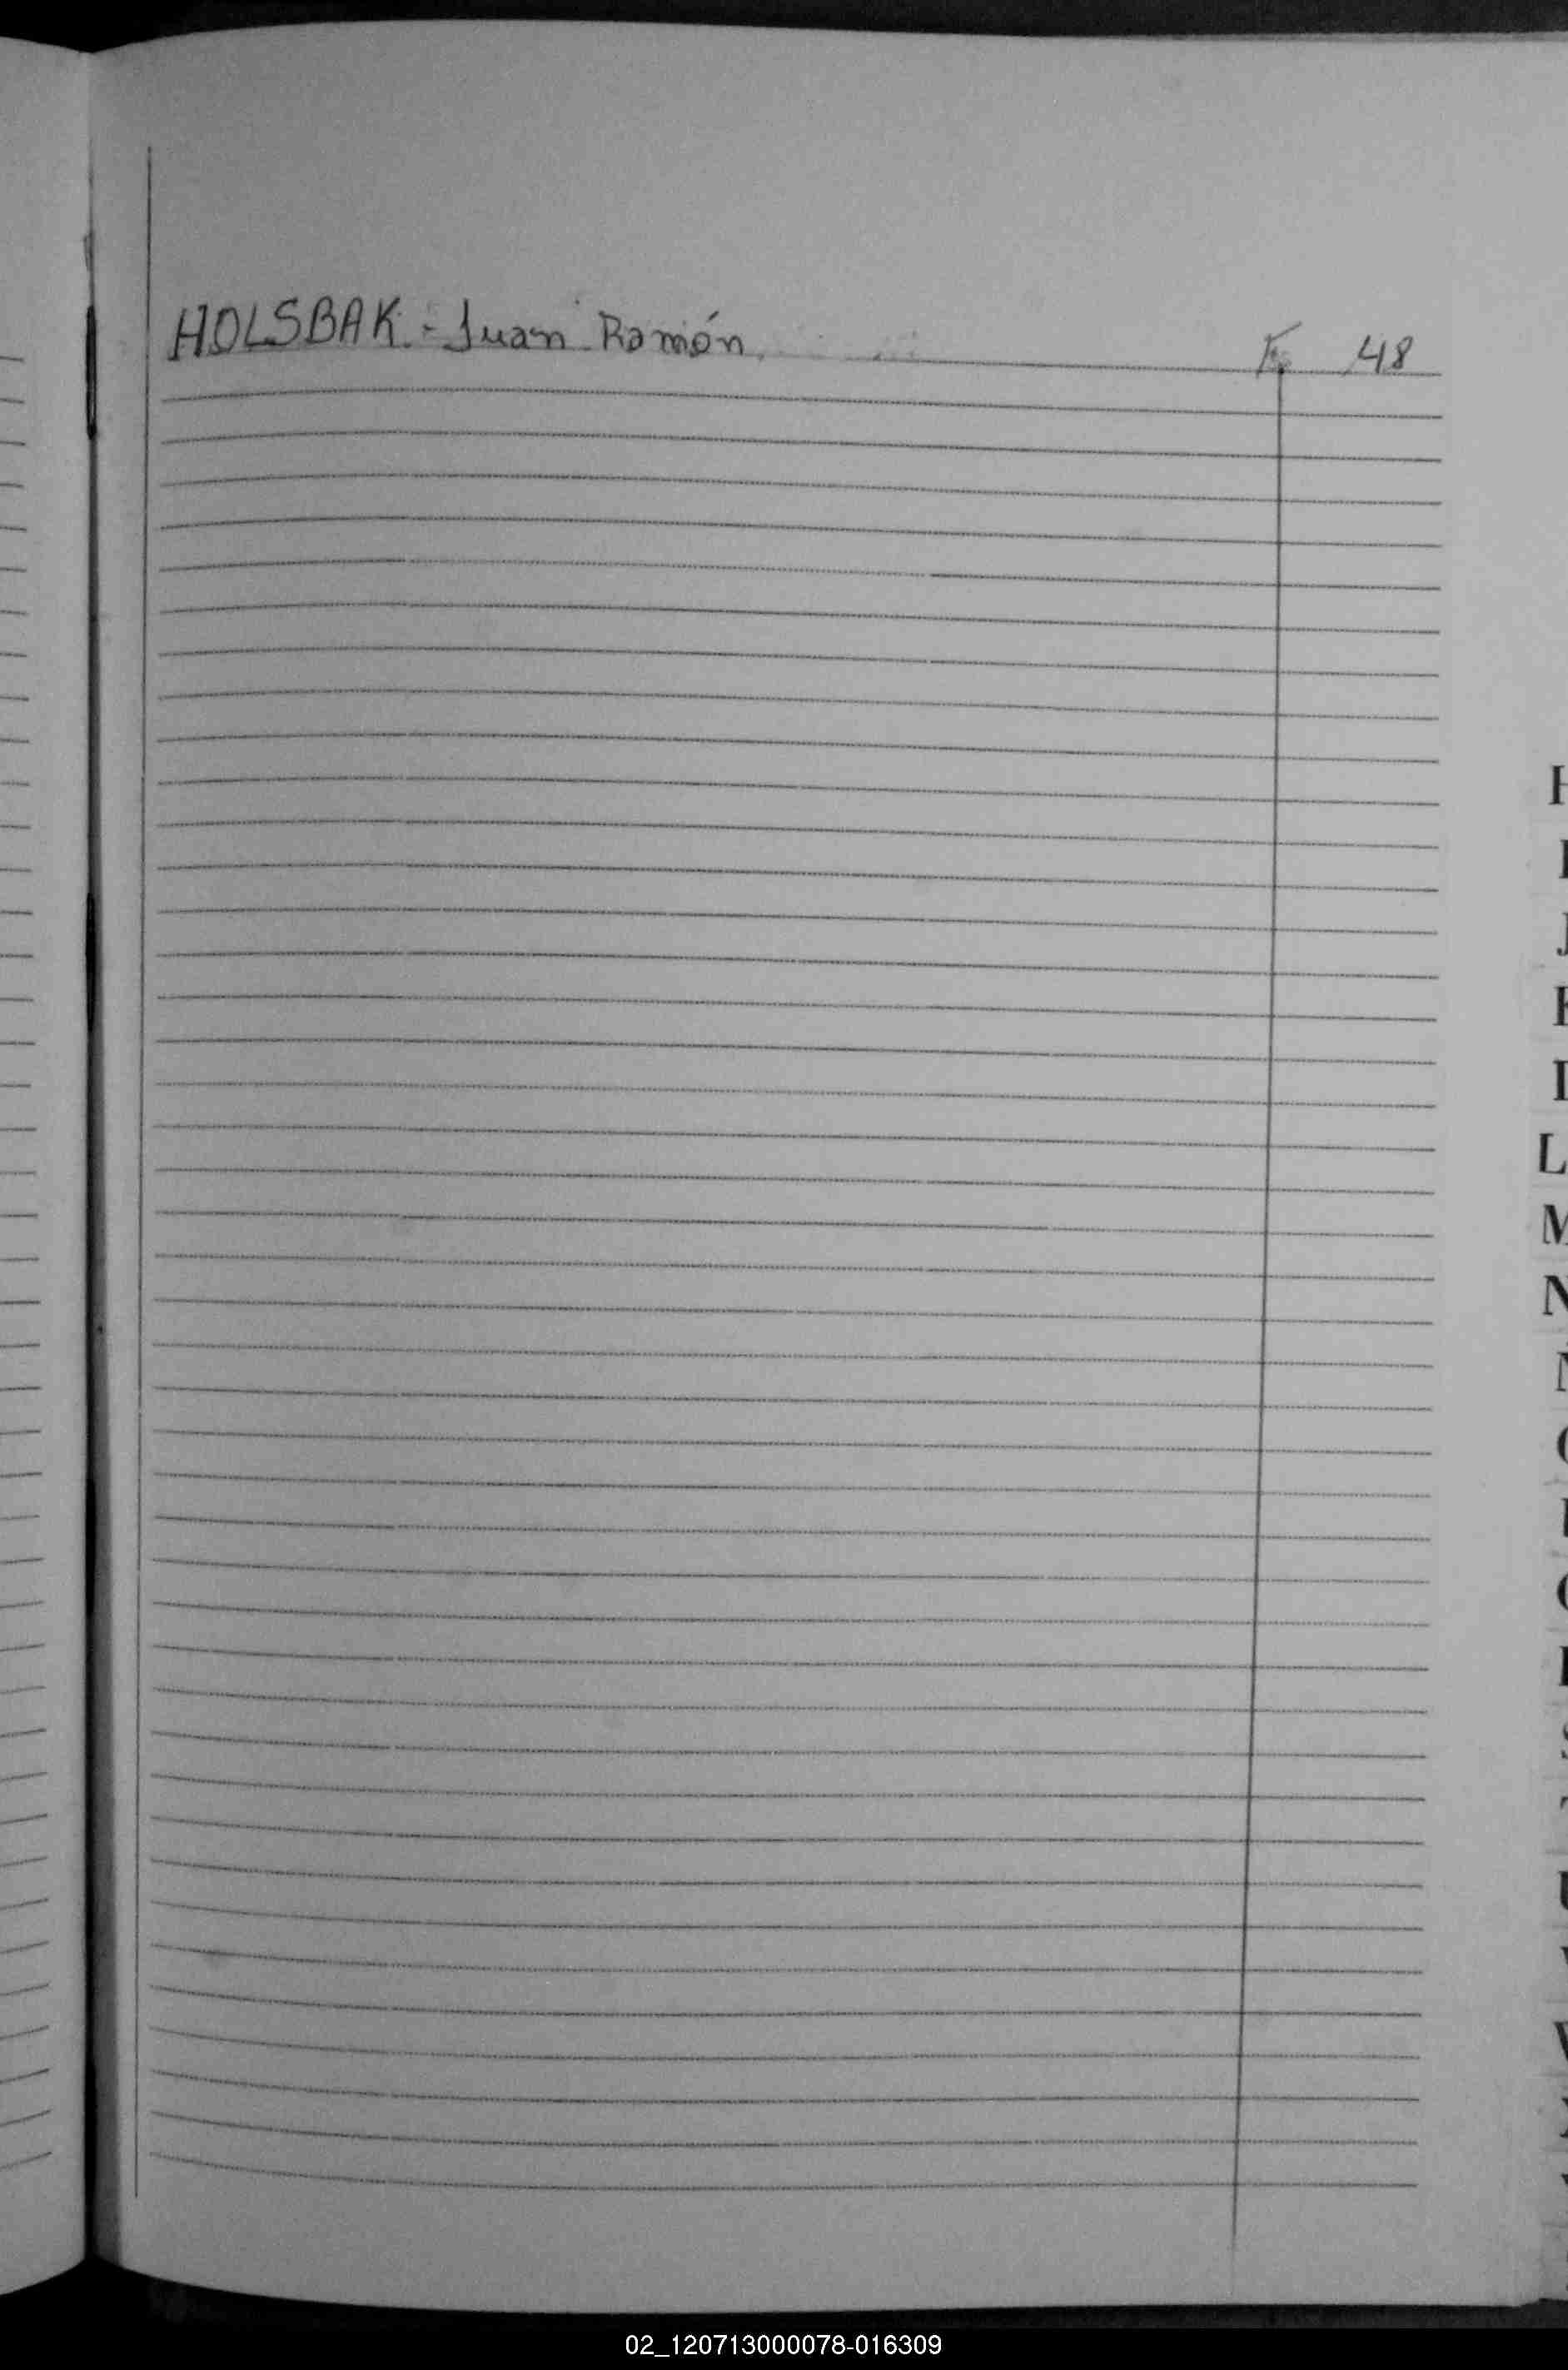 HOLSBAK.- Juan Ramón. F 48
H
I
J
K
L
L
M
N
Ñ
O
P
Q
R
S
T
U
V
W
X
Y
02_120713000078-016309